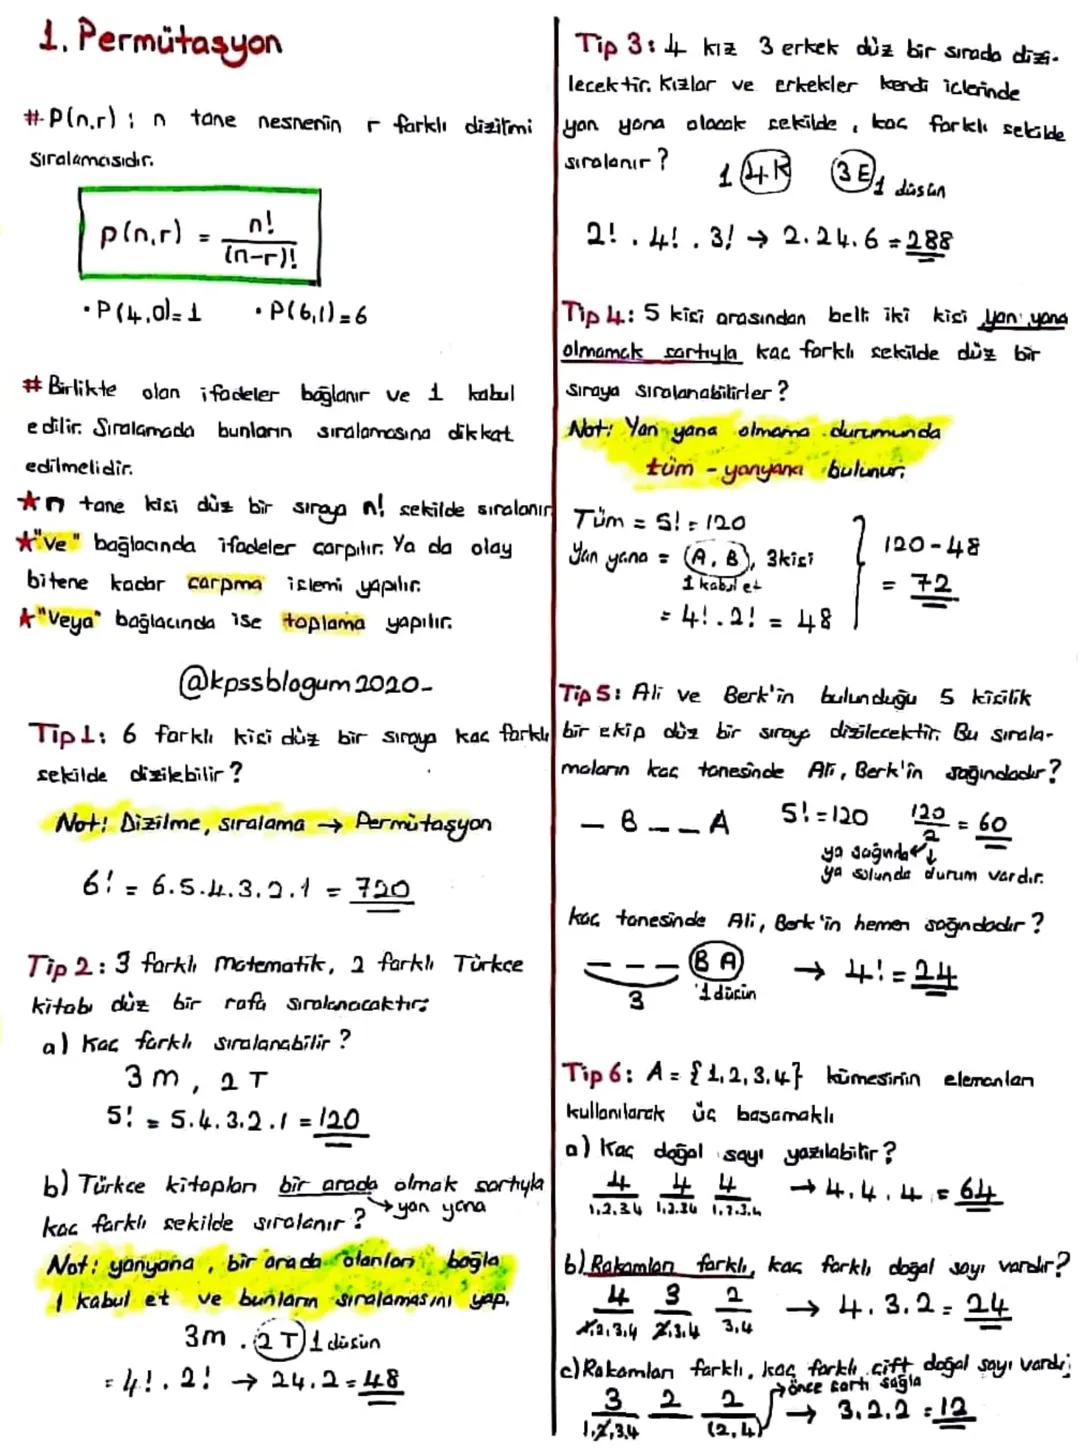 1. Permütasyon
# P(n,r) : n tane nesnenin r farklı dizilimi
sıralamasıdır.
P(n,r) = n! / (n-r)!
• P(4,0)=1 • P(6,1)=6
# Birlikte olan ifadeler bağlanır ve 1 kabul
edilir. Sıralamada bunların sıralamasına dikkat
edilmelidir.
★ n tane kişi düz bir sıraya n! şekilde sıralanır
★ "ve" bağlacında ifadeler çarpılır. Ya da olay
bitene kadar çarpma işlemi yapılır.
★ "Veya" bağlacında ise toplama yapılır.
@kpssblogum2020-
Tip 1: 6 farklı kişi düz bir sıraya kaç farklı
şekilde dizilebilir?
Not: Dizilme, sıralama → Permütasyon
6! = 6.5.4.3.2.1 = 720
Tip 2: 3 farklı matematik, 2 farklı Türkçe
kitabı düz bir rafa sıralanacaktır;
a) Kaç farklı sıralanabilir?
3m, 2T
5! = 5.4.3.2.1 = 120
b) Türkçe kitapları bir arada olmak şartıyla
→ yan yana
kaç farklı şekilde sıralanır?
Not: yanyana, bir arada olanları bağla
1 kabul et ve bunların sıralamasını yap.
3m . 2T 1 düşün
= 4! . 2! → 24.2 = 48
Tip 3: 4 kız 3 erkek düz bir sırada dizi-
lecektir. Kızlar ve erkekler kendi içlerinde
yan yana olacak şekilde, kaç farklı şekilde
sıralanır?
1 4K 3E 1 düşün
2! . 4! . 3! → 2.24.6 = 288
Tip 4: 5 kişi arasından belli iki kişi yan yana
olmamak şartıyla kaç farklı şekilde düz bir
sıraya sıralanabilirler?
Not: Yan yana olmama durumunda
tüm - yanyana bulunur.
Tüm = 5! = 120
Yan yana = (A, B), 3kişi
1 kabul et
= 4!.2! = 48
120-48
= 72
Tip 5: Ali ve Berk'in bulunduğu 5 kişilik
bir ekip düz bir sıraya dizilecektir. Bu sırala-
maların kaç tanesinde Ali, Berk'in sağındadır?
_ B _ _ A 5!=120 120/2 = 60
ya sağında
ya solunda durum vardır.
kaç tanesinde Ali, Berk'in hemen sağındadır?
_ _ _ (B A) → 4! = 24
3 1 düşün
Tip 6: A = {1,2,3,4} kümesinin elemanları
kullanılarak üç basamaklı
a) Kaç doğal sayı yazılabilir?
4 4 4 → 4.4.4 = 64
1,2,3,4 1,2,3,4 1,2,3,4
b) Rakamları farklı, kaç farklı doğal sayı vardır?
4 3 2 → 4.3.2 = 24
1,2,3,4 2,3,4 3,4
c) Rakamları farklı, kaç farklı çift doğal sayı vardır;
→ önce şartı sağla
3 2 2 → 3.2.2 = 12
1,2,3,4 (2,4)